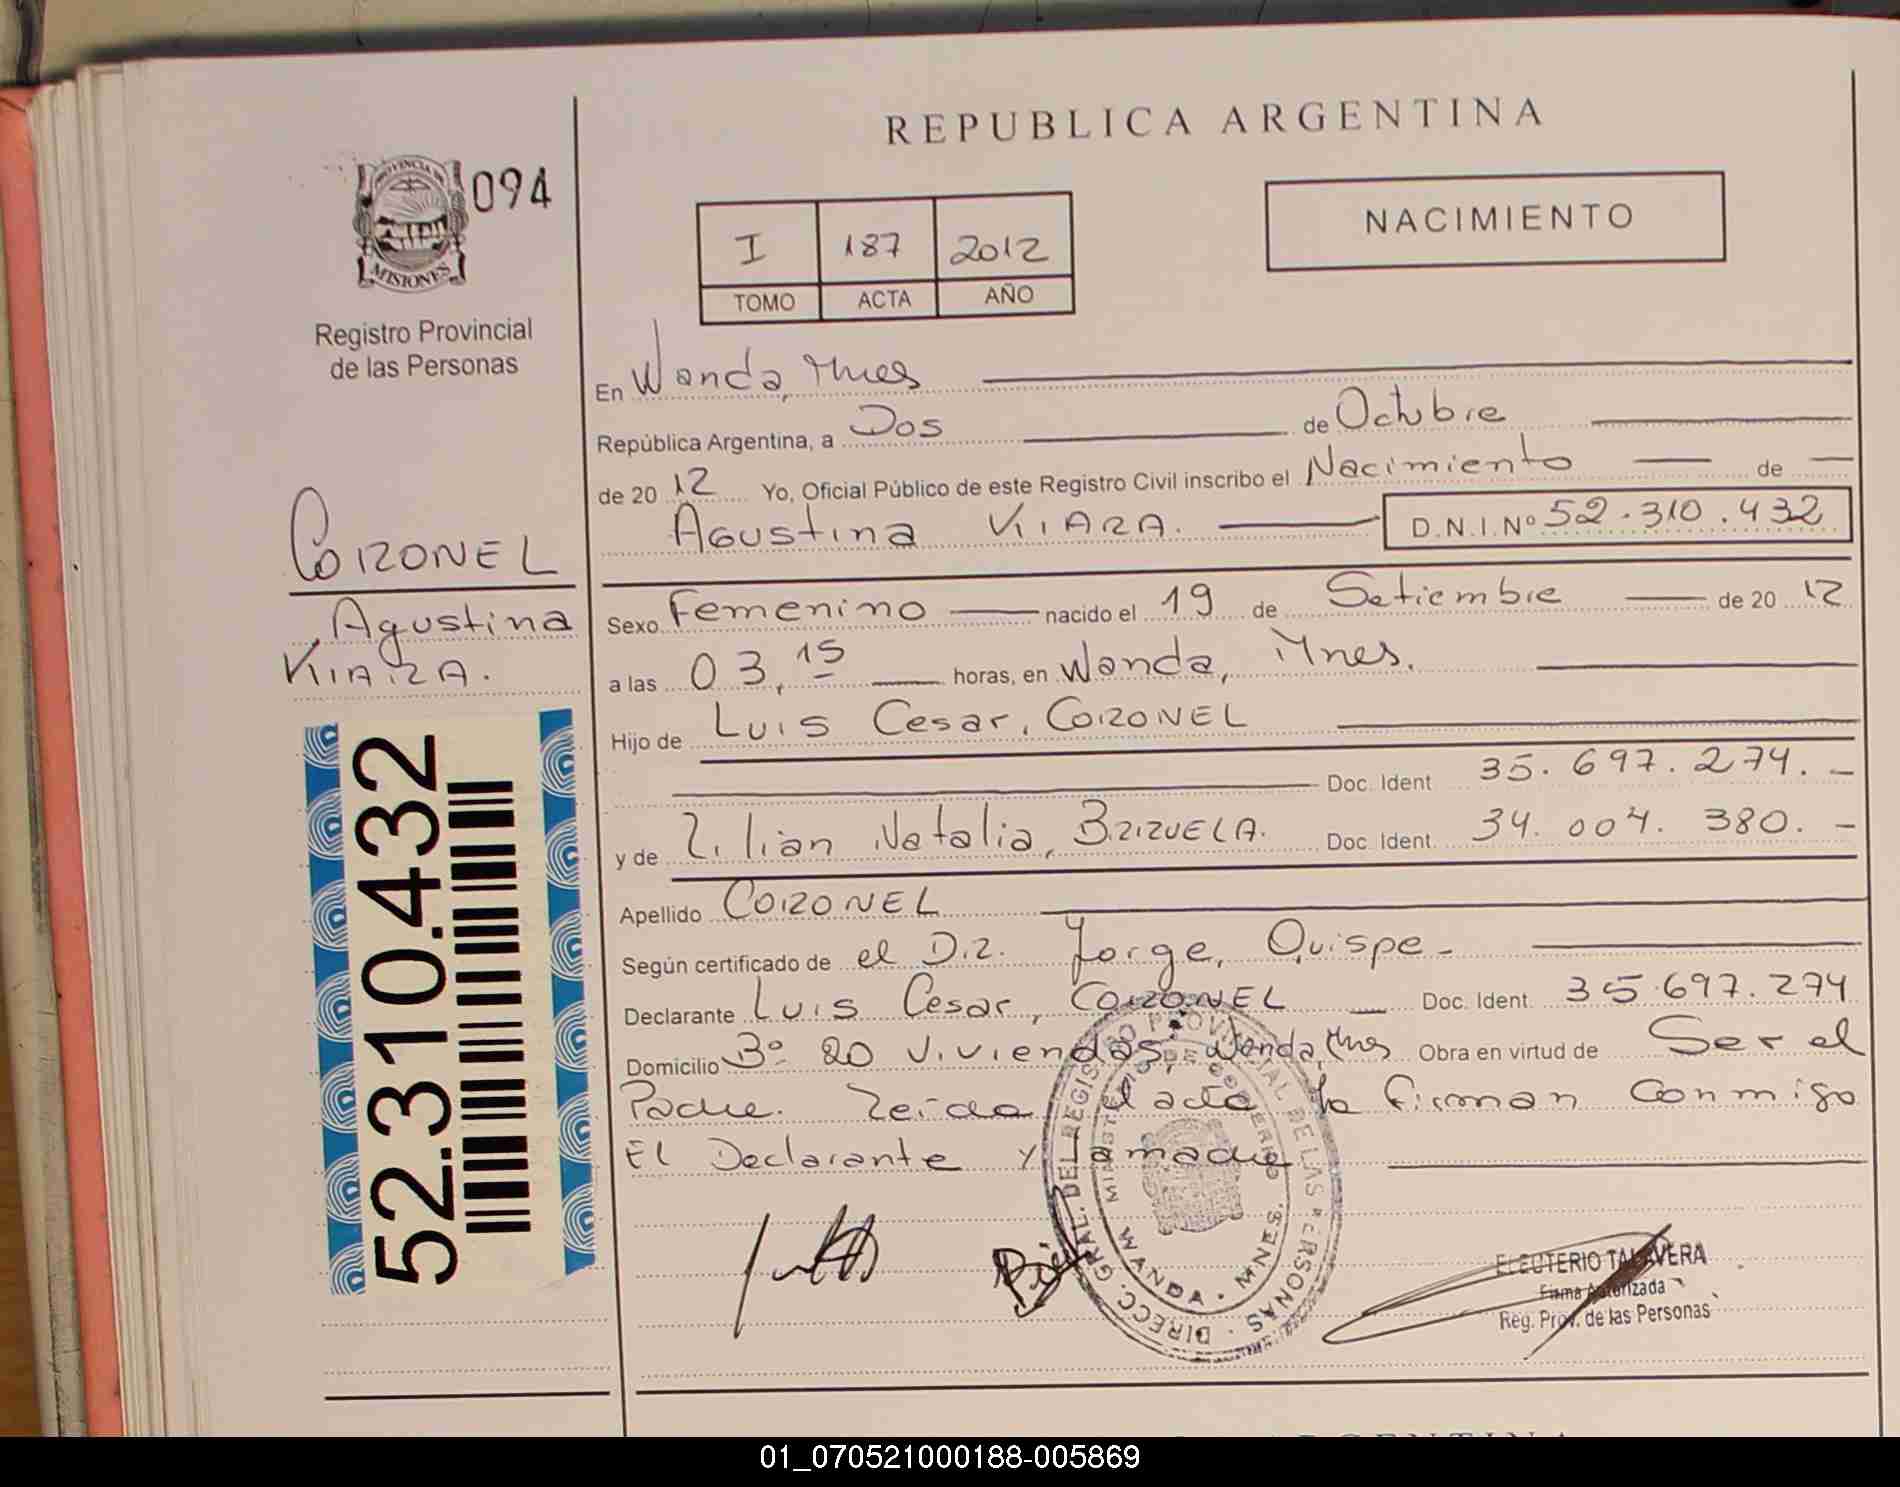 REPUBLICA ARGENTINA
PROVINCIA DE
MISIONES
094
Registro Provincial
de las Personas
I 187 2012
TOMO ACTA AÑO
NACIMIENTO
En Wanda, Mnes
República Argentina, a Dos de Octubre
de 20 12 Yo, Oficial Público de este Registro Civil inscribo el Nacimiento de
Agustina KIARA. D.N.I.Nº 52.310.432
CORONEL
Agustina
KIARA.
Sexo Femenino nacido el 19 de Setiembre de 20 12
a las 03,15 horas, en Wanda, Mnes.
Hijo de Luis Cesar, CORONEL
Doc. Ident 35.697.274.-
y de Lilian Natalia, BRIZUELA. Doc. Ident. 34.004.380.-
Apellido CORONEL
Según certificado de el Dr. Jorge, Quispe-
Declarante Luis Cesar, CORONEL Doc. Ident. 35.697.274
Domicilio Bº 20 viviendas, Wanda, Mnes Obra en virtud de Ser el
Padre. Leida el acta la firman conmigo
El Declarante y la madre
52.310.432
DIRECC. GRAL. DEL REGISTRO PROVINCIAL DE LAS PERSONAS
MINISTERIO DE GOBIERNO
WANDA - MNES.
ELEUTERIO TALAVERA
Firma Autorizada
Reg. Prov. de las Personas
01_070521000188-005869